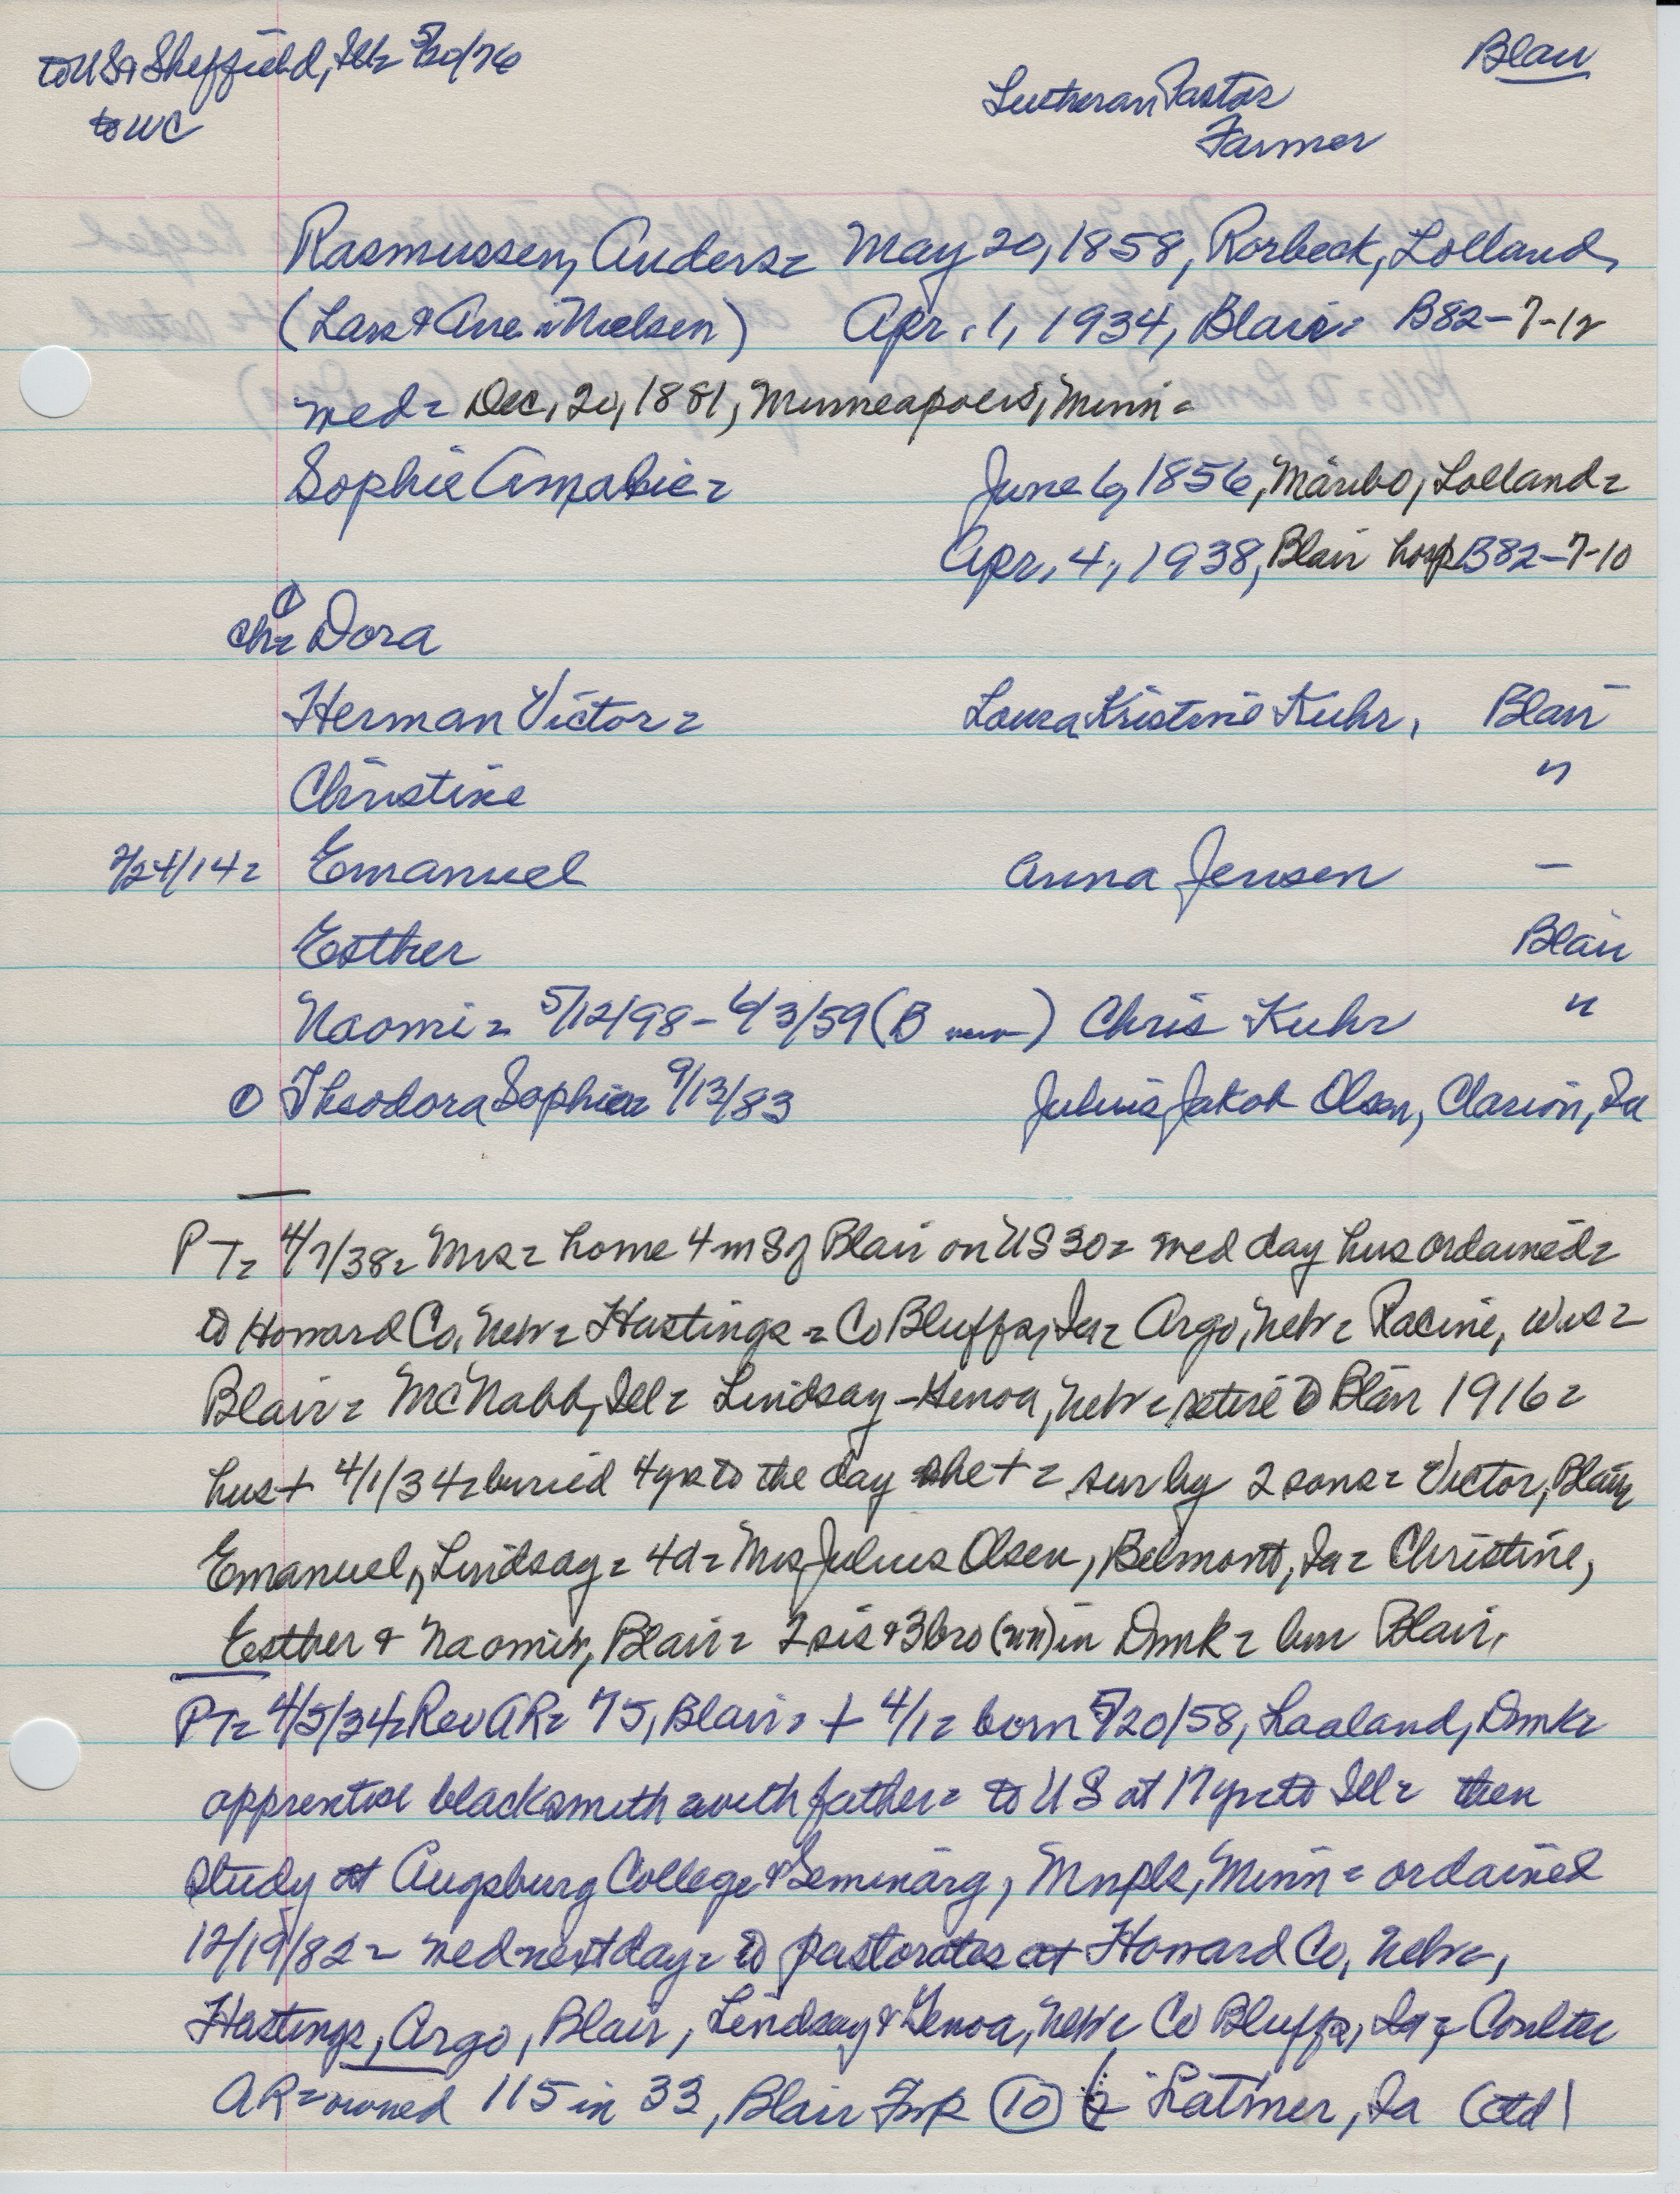 to USA Sheffield, Ill = 5/20/76
Blair
to WC
Lutheran Pastor
Farmer
Rasmussen, Anders = May 20, 1858, Rorbeck, Lolland,
(Lars & Ane = Nielsen) Apr. 1, 1934, Blair = B82-7-12
wed = Dec, 20, 1881, Minneapolis, Minn =
Sophie Amalie = June 6, 1856, Maribo, Lolland =
Apr. 4, 1938, Blair hosp B82-7-10
ch = Dora
Herman Victor = Laura Kristine Kuhr, Blair
Christine "
2/24/14 = Emanuel Anna Jensen —
Esther Blair
Naomi = 5/12/98 - 6/3/59 (B ) Chris Kuhr "
① Theodora Sophie = 9/13/83 Julius Jakob Olsen, Clarion, Ia
PT = 4/7/38 = Mrs = home 4 m S of Blair on US 30 = wed day hus ordained =
to Howard Co, Nebr = Hastings = Co Bluffs, Ia = Argo, Nebr = Racine, Wis =
Blair = McNabb, Ill = Lindsay - Genoa, Nebr = retire to Blair 1916 =
hus + 4/1/34 = buried 4 yrs to the day she + = sur by 2 sons = Victor, Blair,
Emanuel, Lindsay = 4 d = Mrs Julius Olsen, Belmont, Ia = Christine,
Esther & Naomi, Blair = 2 sis & 3 bro (nn) in Dmk = bur Blair.
PT = 4/5/34 = Rev AR = 75, Blair, + 4/1 = born 5/20/58, Laaland, Dmk =
apprentise blacksmith with father = to US at 17 yrs to Ill = then
study at Augsburg College & Seminary, Mnpls, Minn = ordained
12/19/82 = wed next day = to pastorates at Howard Co, Nebr,
Hastings, Argo, Blair, Lindsay & Genoa, Nebr = Co Bluffs, Ia & Coulter
AR = owned 115 in 33, Blair Twp (10) & Latimer, Ia (ctd)